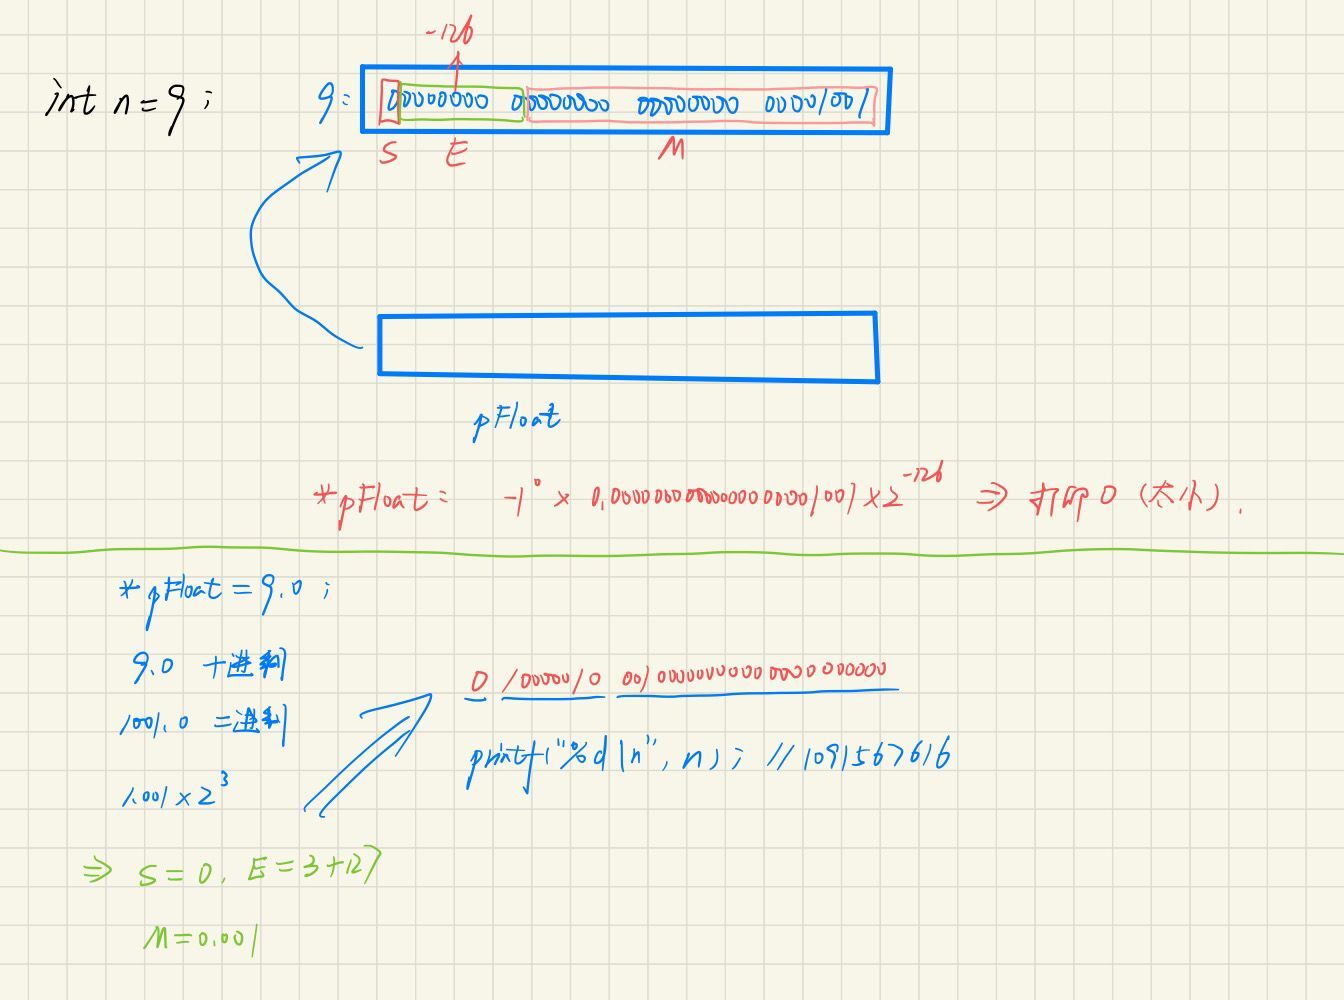 -126
int n = 9 ;
9: 00000000 00000000 00000000 00001001
S E M
pFloat
*pFloat: -1⁰ × 0.00000000000000000001001 × 2⁻¹²⁶ ⇒ 打印 0 (太小).
*pFloat = 9.0 ;
9.0 十进制
0 10000010 00100000000000000000000
1001.0 二进制
printf("%d\n", n); //1091567616
1.001 × 2³
⇒ S = 0. E = 3+127
M = 0.001